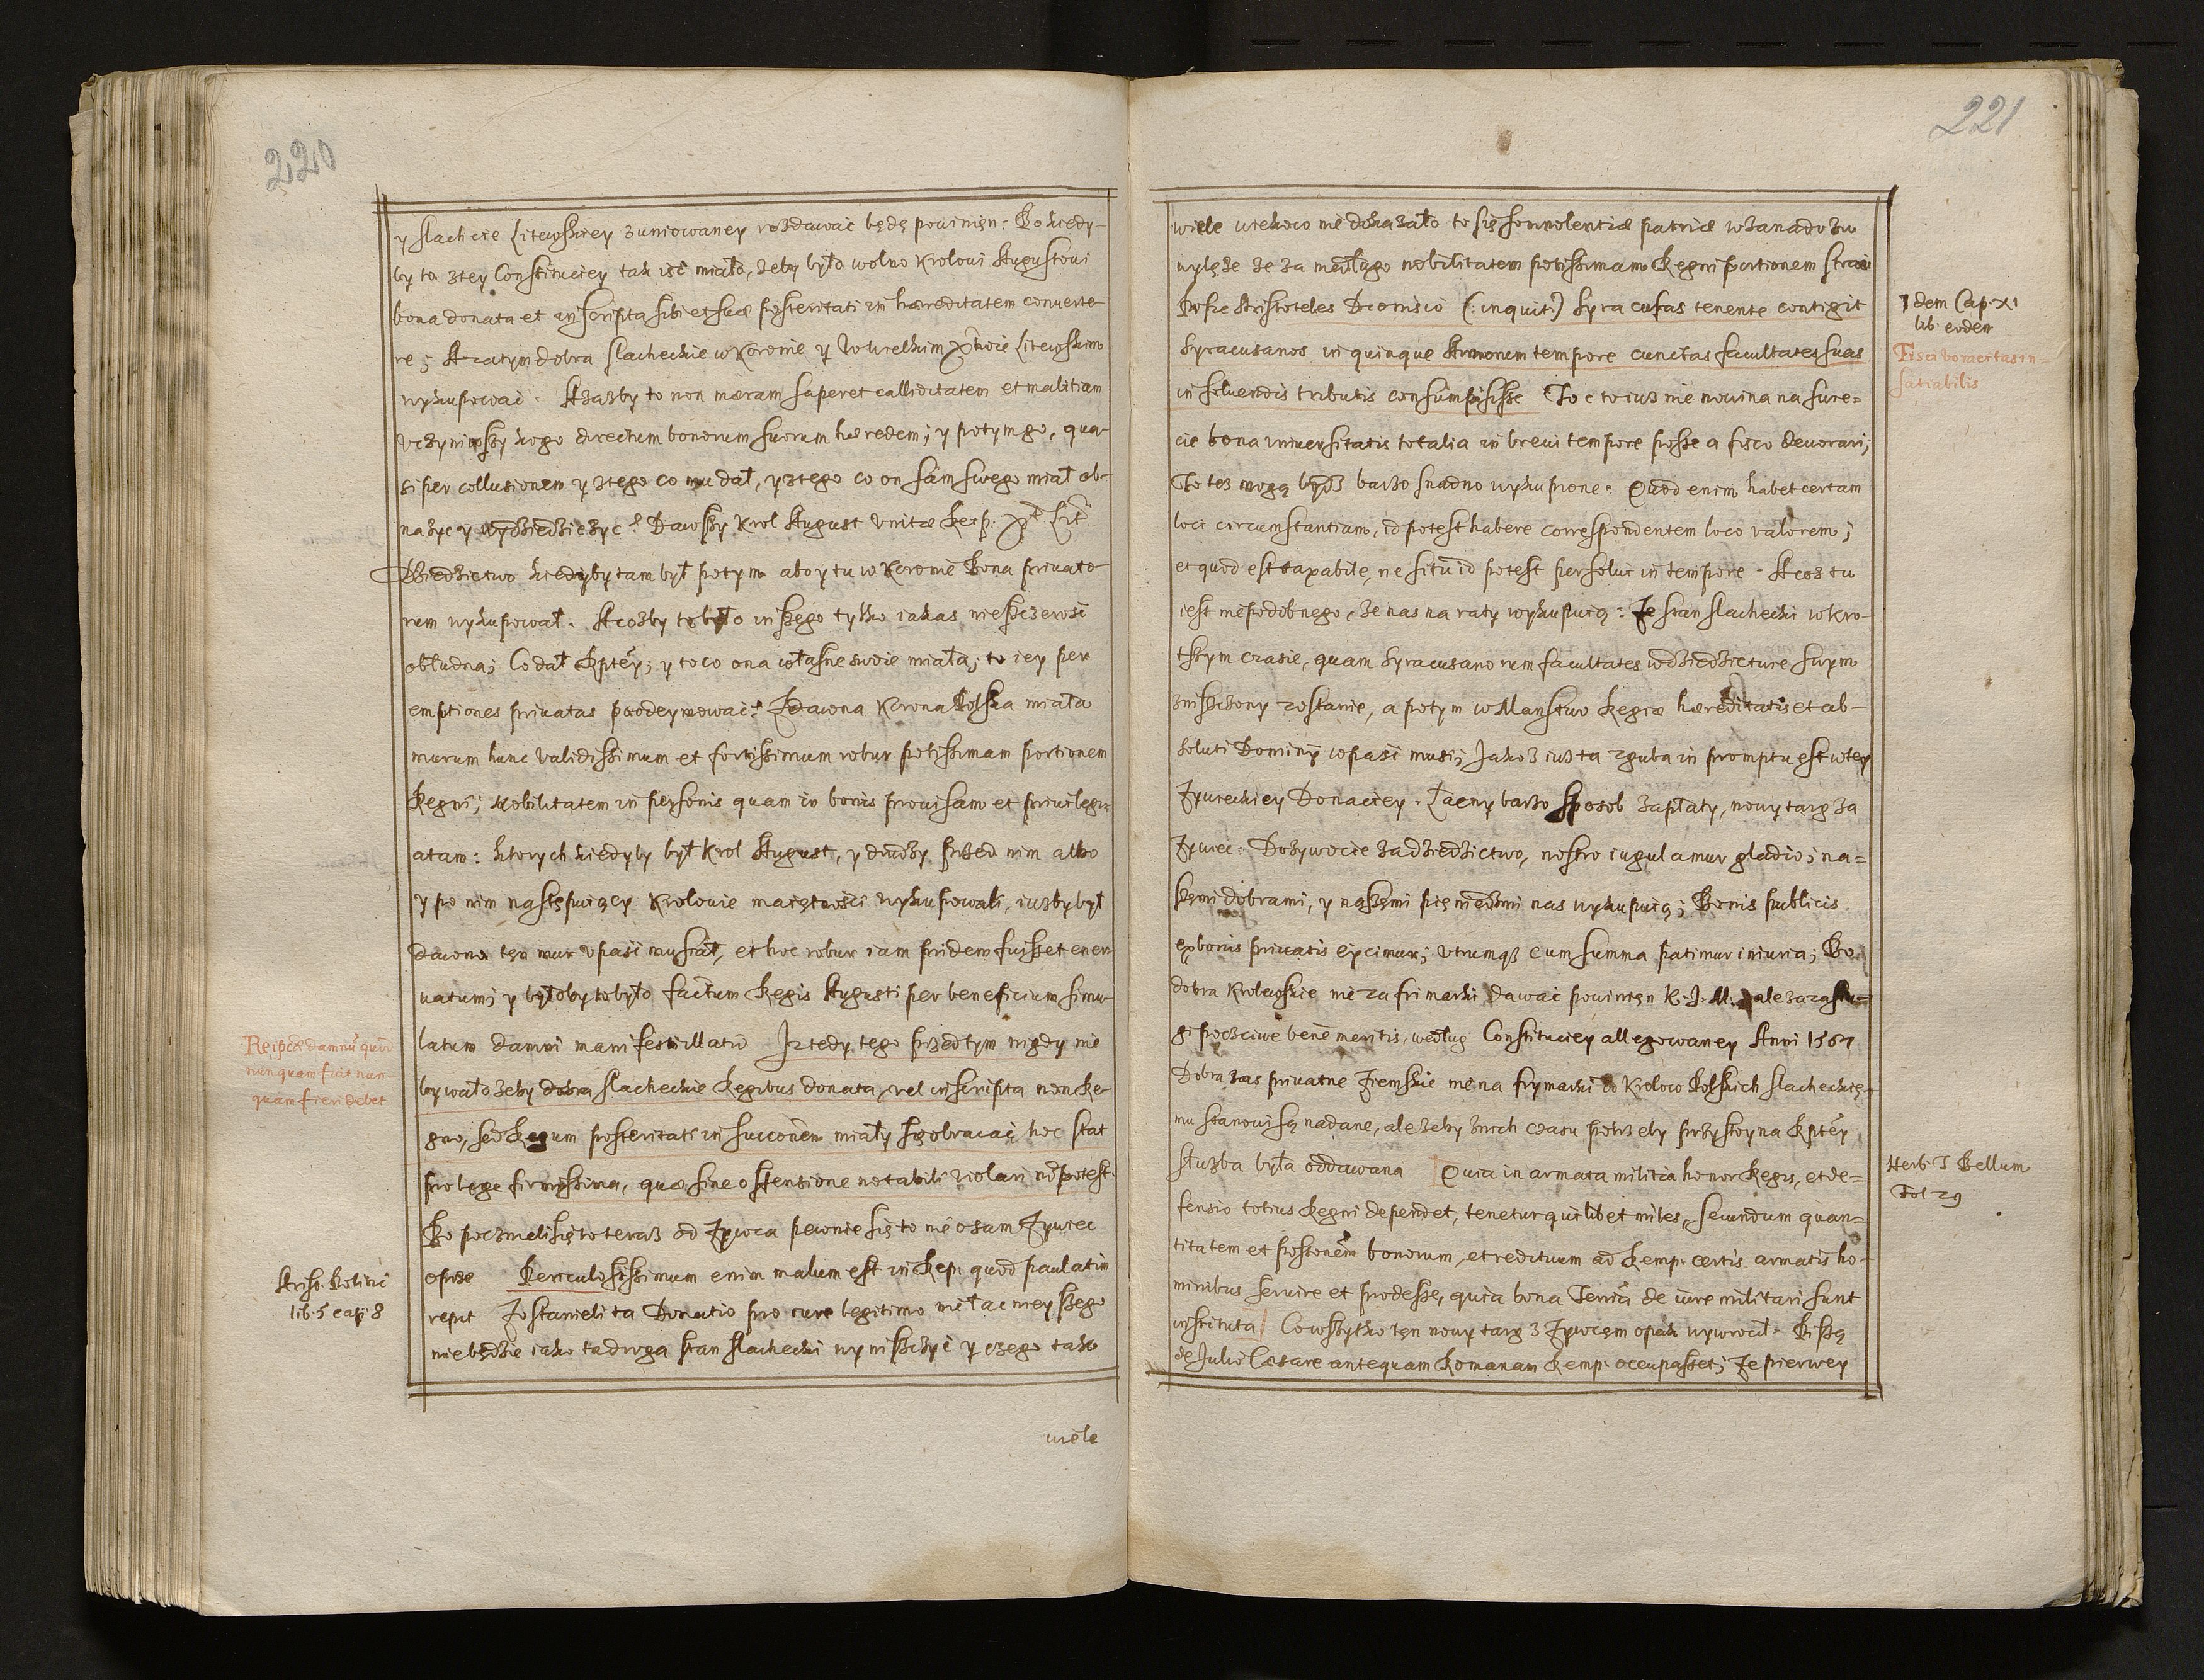 220
y slachcie Litewskiey zuniowaney rozdawać będę powinięn: Bo kiedy-
by to z tey Constituciey tak iść miało, żeby było wolno Krolowi Augustowi
bona donata et inscripta sibi et suæ posteritati in hæreditatem converte-
re; A za tym dobra slacheckie w Koronie y w Wielkim Xtwie Litewskim
wykupować. Azazby to non meram saperet calliditatem et malitiam
uczyniwszy kogo directum bonorum suorum hæredem; y potym go, qua-
si per collusionem y z tego co mu dał, y z tego co on sam swego miał ob-
nażyc y wydziedziczyc? Dawszy Krol August unitæ Reip. Xt Lit
Dziedzictwo kiedyby tam był potym abo y tu w Koronie Bona privato-
rum wykupował. A cożby to było inszego tylko iakas nieszczerość
obłudna; Co dał Rptey; y to co ona własne swoie miała; to iey per
emptiones privatas podeymować? Zdawna Korona Polska miała
murum hunc validissimum et fortissimum robur potissimam portionem
Regni; Nobilitatem in personis quam in bonis provisam et privilegi-
atam: ktorych kiedyby był Krol August, y drudzy przed nim albo
y po nim następuiący Krolowie maiętności wykupowali, iużby był
dawno tęn mur upaść musiał, et hoc robur iam pridem fuisset ener-
vatum; y byłoby to było factum Regis Augusti per beneficium simu-
latum damni manifesti illatū Iz tedy tego przedtym nigdy nie
bywało żeby dobra slacheckie Regibus donata, vel inscripta non Re-
gno, sed Regum posteritati in succonem miały się obracać hoc stat
pro lege firmissima, quæ sine ostensione notabili violari nō potest.
Bo poczmeli się to teraz od Zywca pewnie się to nie o sam Zywiec
oprze Periculosissimum enim malum est in Rep: quod paulatim
repit Zostanieli ta Donatio pro iure legitimo nie łacnieyszego
niebędzie iako ta droga stan slachecki wyniszczyć y czego tako
wiele
Reipcæ damnū quod
nunquam fuit nun-
quam fieri debet
Arist. Politic
lib. 5 cap: 8
221
wiele wiekow nie dokazało to się somnolentiæ patriæ w zanadrzu
wylęże że za mał̨ego nobilitatem potissimam Regni portionem straci
Pisze Aristoteles Dionisio (: inquit:) Syracusas tenente contigit
Syracusanos in quinque Annorum tempore cunctas facultates suas
in solvendis tributis consumpsisse Toc to iuz nie nowina na swie=
cie bona universitatis totalia in brevi tempore posse a fisco devorari;
To tez mogą bydz barzo snadno wykupione. Quod enim habet certam
loci circumstantiam, id potest habere correspondentem loco valorem;
et quod est taxabile, ne situ id potest persolvi in tempore. A coz tu
iest niepodobnego, że nas na raty wykupuią: Ze stan slachecki w kro-
tszym czasie, quam Syracusanorum facultates w dziedzictwie swym
zniszczony zostanie, a potym w Manstwo Regiæ hæreditatis et ab-
soluti Dominÿ wpaść musi; Iakoż iuż ta zguba in promptu est w tey
Zywieckiey Donaciey. Łacny barzo sposob zapłaty, nowy targ za
Zywiec: Dożywocie za dziedzictwo, nostro iugulamur gladio; na=
szęmi dobrami, y naszęmi pięniedzmi nas wykupuią; Bonis publicis
ex bonis privatis eÿcimur; utrumqȝ cum summa patimur iniuria; Bo
dobra Krolewskie nie za frimarki dawać powinięn K. J. M. ale za zasłu=
gi poczciwe bene meritis, według Constituciey allegowaney Anni 1567
Dobra zas privatne Ziemskie nie na frymarki do Krolow Polskich slacheckię-
mu stanowi są nadane, ale żeby z nich czasu potrzeby przystoyna Rptey
służba była oddawana Quia in armata militia honor Regis, et de=
fensio totius Regni dependet, tenetur quilibet miles, secundum quan=
titatem et possonem bonorum, et redituum ad Remp. certis armatis ho-
minibus servire et prodesse, quia bona Terrā de iure militari sunt
instituta Co wszytko tęn nowy targ z Zywcęm opak wywrocił. Piszą
de Julio Cæsare antequam Romanam Remp: occupasset; Ze pierwey
Idem Cap. XI
lib: eodem
Fisci voracitas in=
satiabilis
Herb. T Bellum
Fol 29